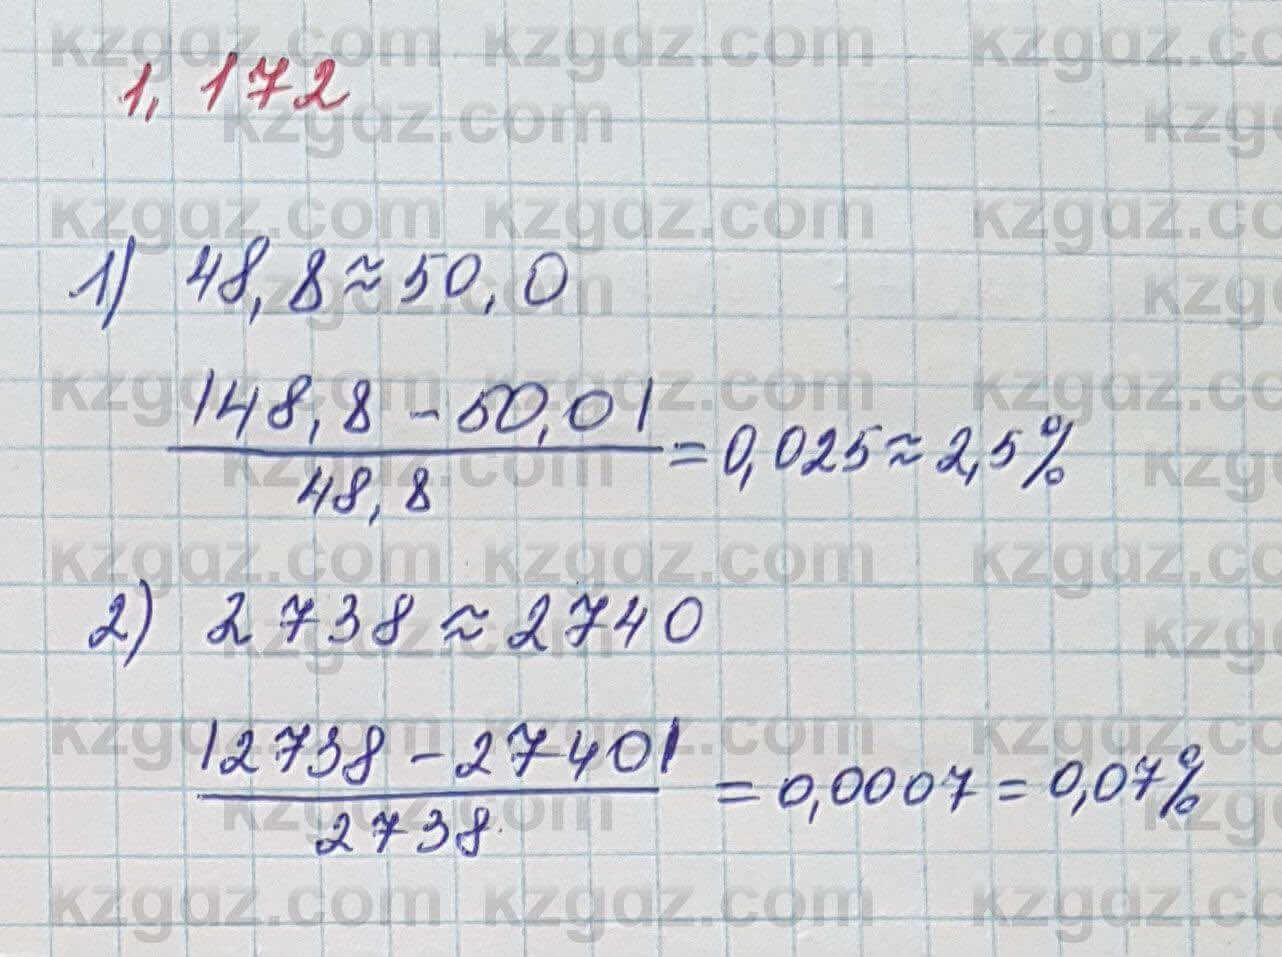 1.172
1) 48,8 ≈ 50,0
|48,8 - 50,0|
48,8
= 0,025 ≈ 2,5%
2) 2738 ≈ 2740
|2738 - 2740|
2738
= 0,0007 = 0,07%
kzgdz.com